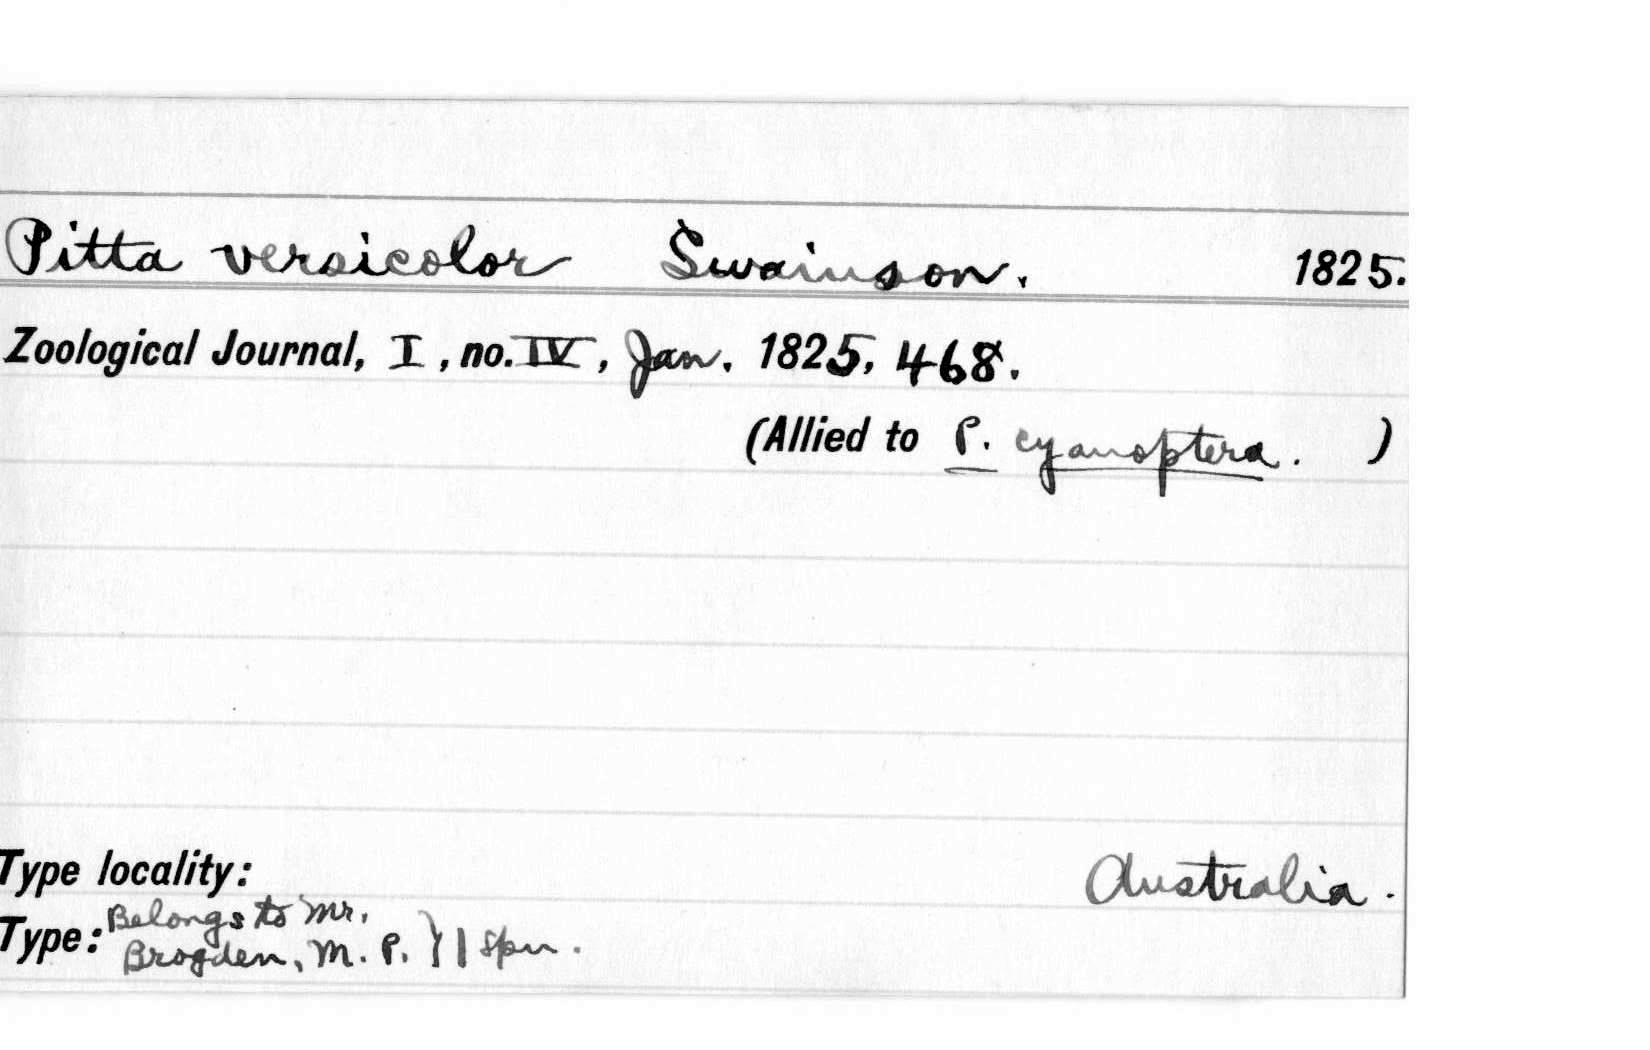 Pitta versicolor Swainson. 1825.
Zoological Journal, I, no. IV, Jan. 1825, 468.
(Allied to P. cyanoptera. )
Type locality: Australia.
Type: Belongs to Mr.
Brogden, M. P. } 1 spn.